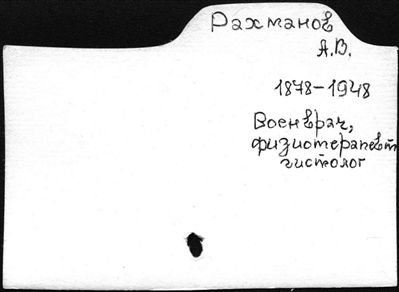 Рахманов
А.В.
1878-1948
Военврач,
физиотерапевт
гистолог